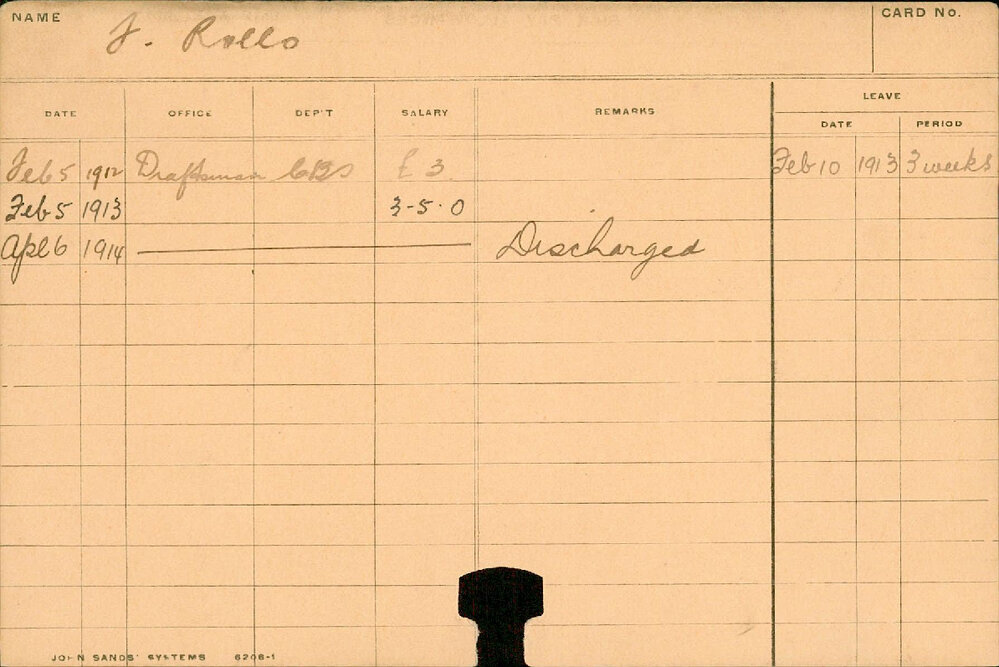 NAME J. Rollo CARD No.
LEAVE
DATE OFFICE DEP'T SALARY REMARKS DATE PERIOD
Feb 5 1912 Draftsman CBS £3 Feb 10 1913 3 weeks
Feb 5 1913 3-5-0
Apl 6 1914 Discharged
JOHN SANDS' SYSTEMS 6206-1